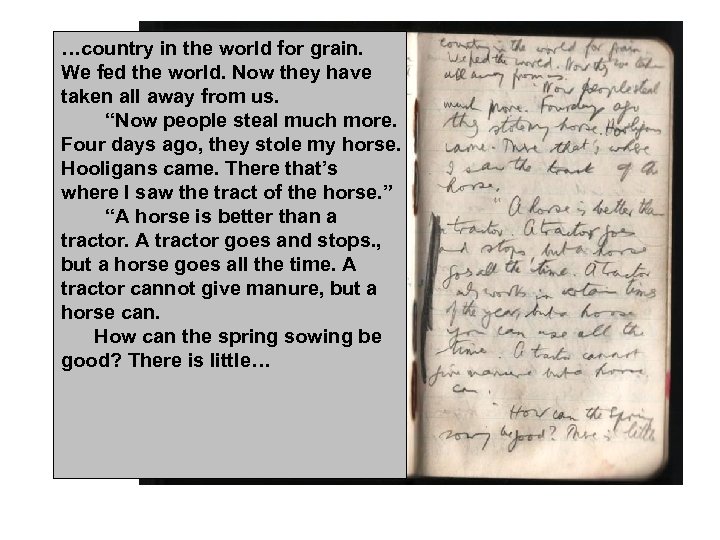 …country in the world for grain.
We fed the world. Now they have
taken all away from us.
“Now people steal much more.
Four days ago, they stole my horse.
Hooligans came. There that’s
where I saw the tract of the horse. ”
“A horse is better than a
tractor. A tractor goes and stops. ,
but a horse goes all the time. A
tractor cannot give manure, but a
horse can.
How can the spring sowing be
good? There is little…
country in the world for grain.
We fed the world. Now they have taken
all away from us.
"Now people steal
much more. Four days ago
they stole my horse. Hooligans
came. There that's where
I saw the tract of a
horse.
"A horse is better than
tractor. A tractor goes
and stops, but a horse
goes all the time. A tractor
only works in certain times
of the year, but a horse
you can use all the
time. A tractor cannot
give manure but a horse
can.
"How can the spring
sowing be good? There is little